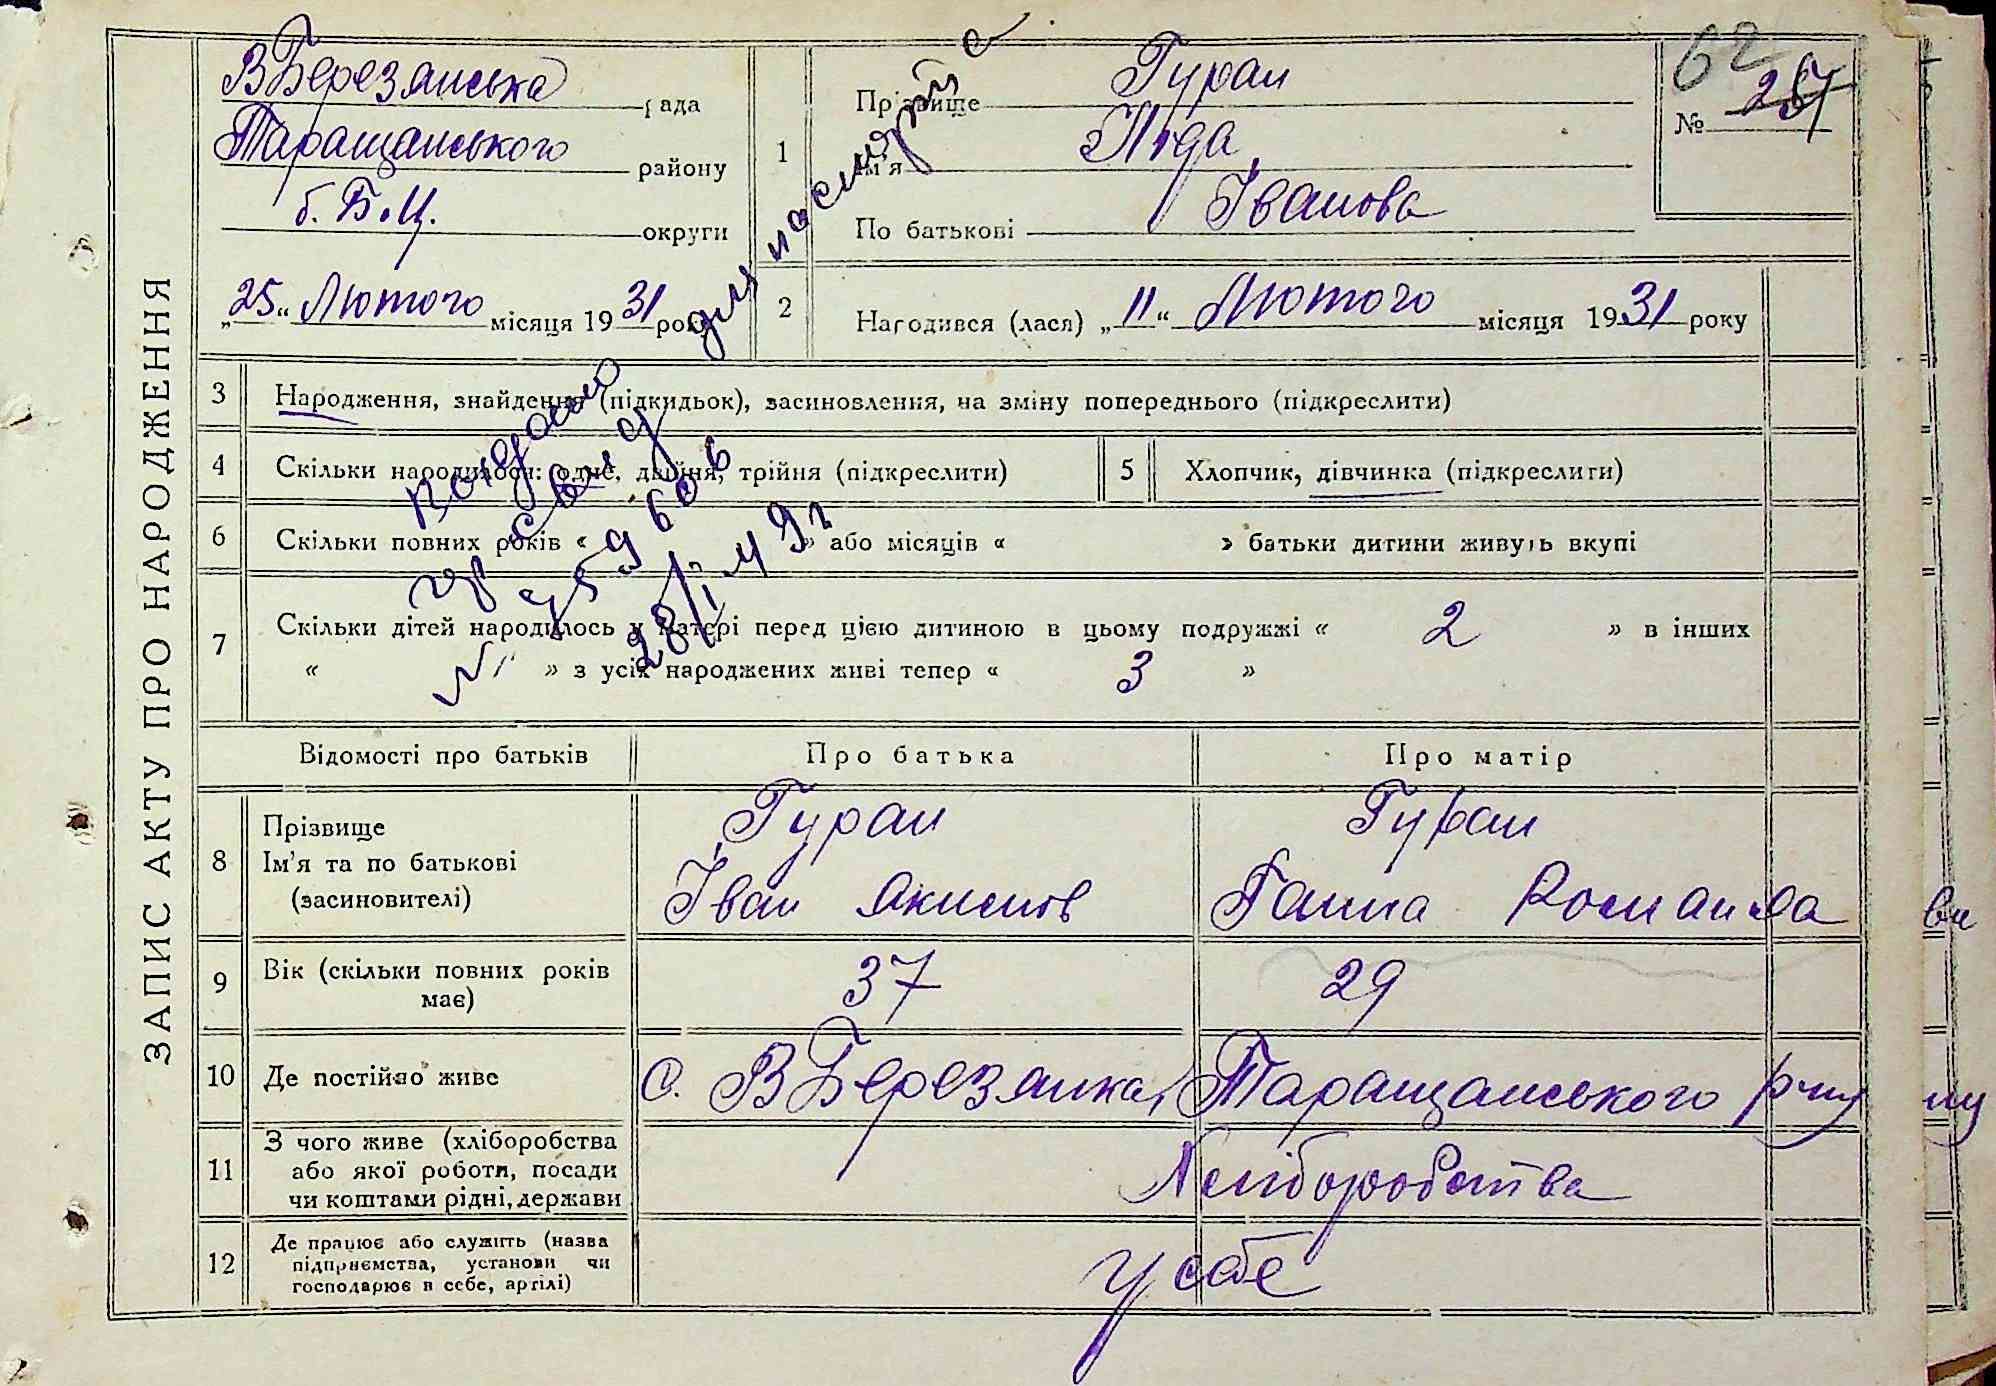 ЗАПИС АКТУ ПРО НАРОДЖЕННЯ
ВБерезанська рада
Таращанського району
б. Б.Ц. округи
„25“ Лютого місяця 1931 року
1
Прізвище Гуран
Ім'я Ліда
По батькові Іванова
62
№ 257
2
Народився (лася) „11“ Лютого місяця 1931 року
3 Народження, знайдення (підкидьок), засиновлення, на зміну попереднього (підкреслити)
4 Скільки народилося: одне, двійня, трійня (підкреслити)
5 Хлопчик, дівчинка (підкреслити)
6 Скільки повних років « » або місяців « » батьки дитини живуть вкупі
7 Скільки дітей народилось у матері перед цією дитиною в цьому подружжі « 2 » в інших
« » з усіх народжених живі тепер « 3 »
для паспорта
28/I 49г
Відомості про батьків
Про батька
Про матір
8 Прізвище
Ім'я та по батькові
(засиновителі)
Гуран
Іван Якимов
Гуран
Ганна Романова
9 Вік (скільки повних років
має)
37
29
10 Де постійно живе
с. ВБерезанка, Таращанського р-ну
11 З чого живе (хліборобства
або якої роботи, посади
чи коштами рідні, держави
Хліборобства
12 Де працює або служить (назва
підприємства, установи чи
господарює в себе, артілі)
У себе